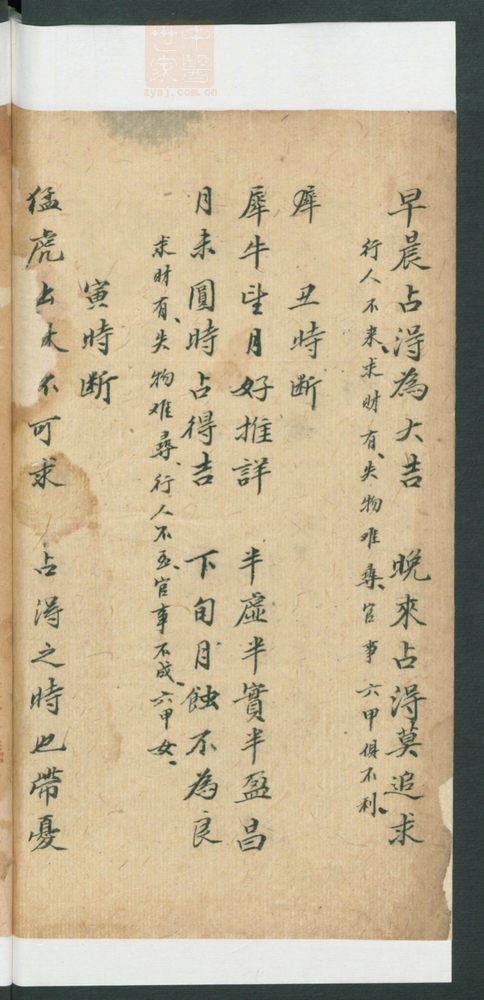 早晨占得為大吉 晚來占得莫追求
行人不来、求财有、失物难尋、官事六甲俱不利、
犀 丑時断
犀牛望月好推詳 半虛半實半盈昌
月未圓時占得吉 下旬月蝕不為良
求财有、失物难尋、行人不至、官事不成、六甲女、
寅時断
猛虎出林不可求 占得之時也帶憂
zysj.com.cn